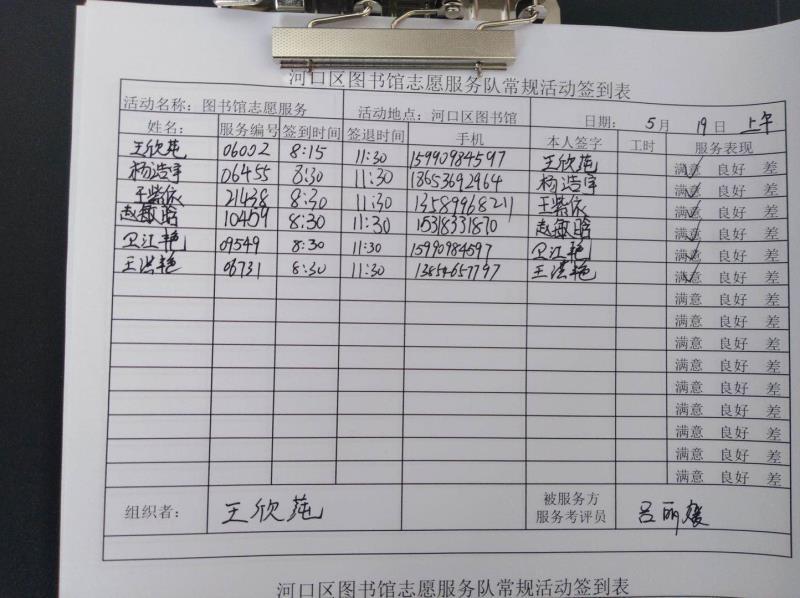 河口区图书馆志愿服务队常规活动签到表
活动名称: 图书馆志愿服务 活动地点: 河口区图书馆 日期: 5月 19日 上午
姓名: 服务编号 签到时间 签退时间 手机 本人签字 工时 服务表现
王欣莼 06002 8:15 11:30 15990984597 王欣莼 满意 良好 差
杨浩宇 06455 8:30 11:30 18653692964 杨浩宇 满意 良好 差
王紫依 21438 8:30 11:30 13589968211 王紫依 满意 良好 差
赵融晗 10459 8:30 11:30 15318331870 赵融晗 满意 良好 差
卫江艳 09549 8:30 11:30 15990984597 卫江艳 满意 良好 差
王洪艳 03731 8:30 11:30 13854657797 王洪艳 满意 良好 差
满意 良好 差
满意 良好 差
满意 良好 差
满意 良好 差
满意 良好 差
满意 良好 差
满意 良好 差
满意 良好 差
满意 良好 差
组织者: 王欣莼 被服务方 吕丽媛
服务考评员
河口区图书馆志愿服务队常规活动签到表